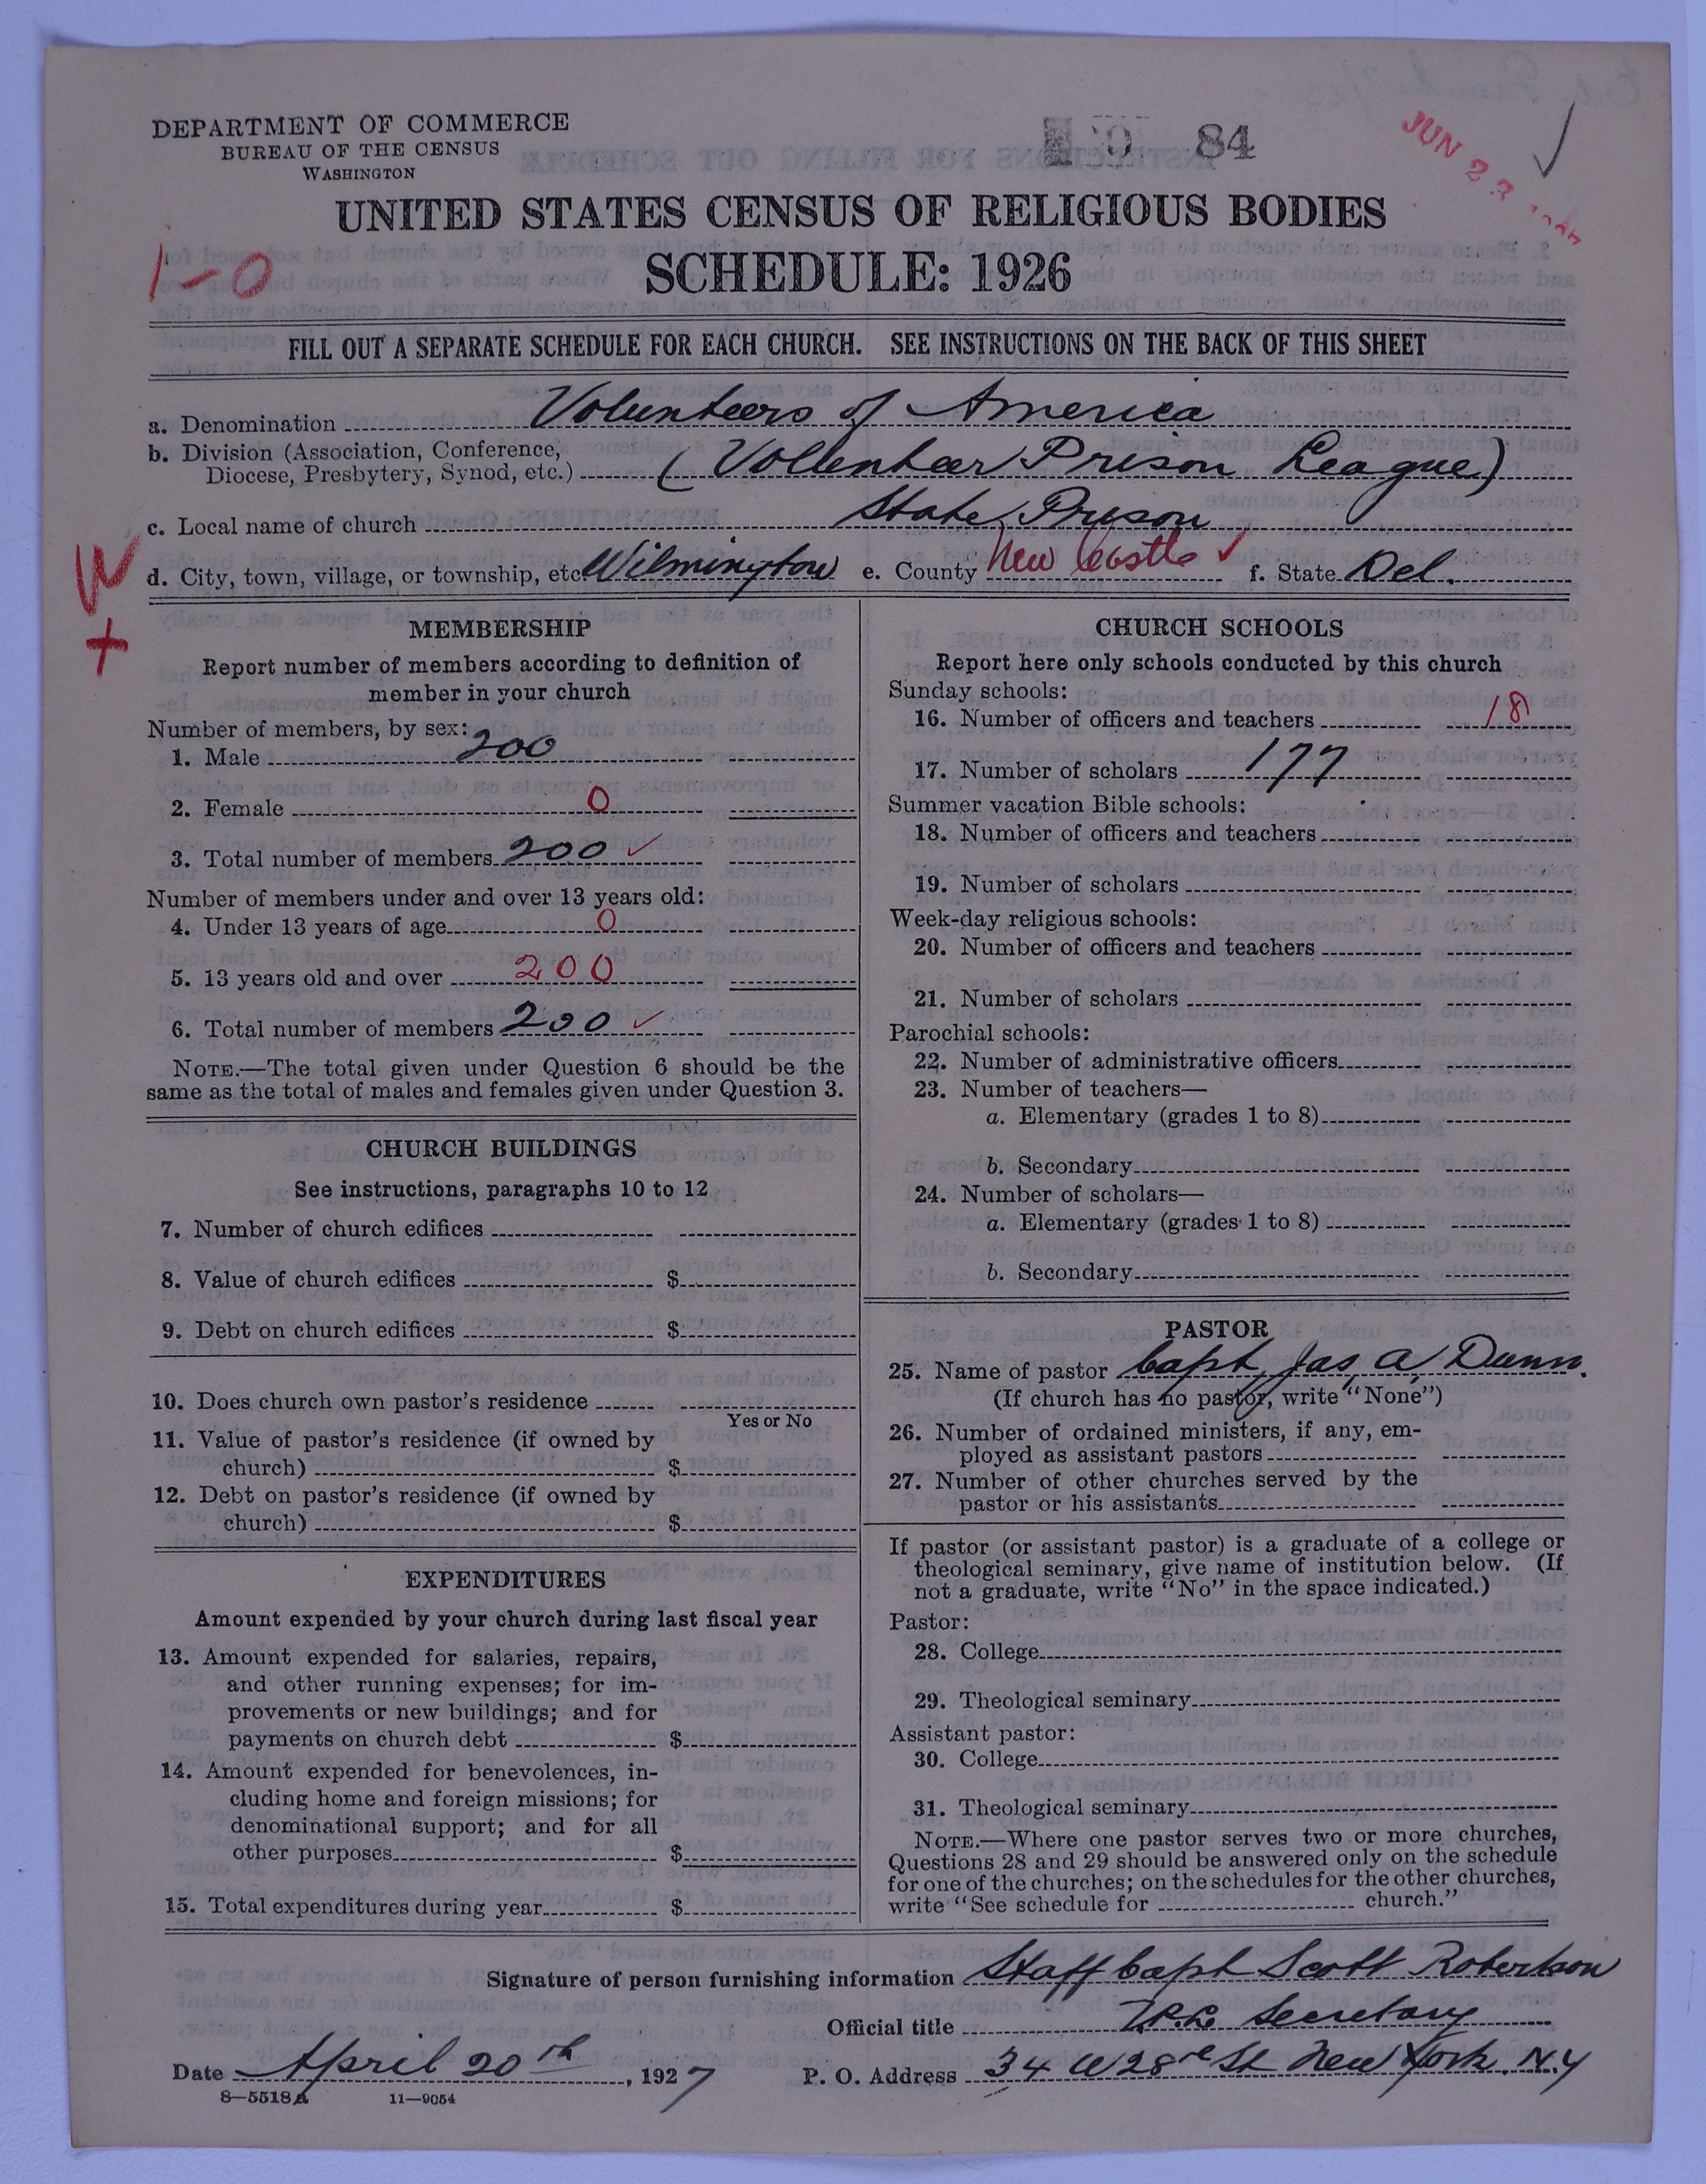 DEPARTMENT OF COMMERCE
BUREAU OF THE CENSUS
WASHINGTON
84
JUN 23
UNITED STATES CENSUS OF RELIGIOUS BODIES
1-0
SCHEDULE: 1926
FILL OUT A SEPARATE SCHEDULE FOR EACH CHURCH. SEE INSTRUCTIONS ON THE BACK OF THIS SHEET
a. Denomination Volunteers of America
b. Division (Association, Conference,
Diocese, Presbytery, Synod, etc.) (Volunteer Prison League)
c. Local name of church State Prison
W
+
d. City, town, village, or township, etc. Wilmington e. County New Castle ✓ f. State Del.
MEMBERSHIP
Report number of members according to definition of
member in your church
Number of members, by sex:
1. Male 200
2. Female 0
3. Total number of members 200 ✓
Number of members under and over 13 years old:
4. Under 13 years of age 0
5. 13 years old and over 200
6. Total number of members 200 ✓
NOTE.—The total given under Question 6 should be the
same as the total of males and females given under Question 3.
CHURCH BUILDINGS
See instructions, paragraphs 10 to 12
7. Number of church edifices
8. Value of church edifices $
9. Debt on church edifices $
10. Does church own pastor's residence
Yes or No
11. Value of pastor's residence (if owned by
church) $
12. Debt on pastor's residence (if owned by
church) $
EXPENDITURES
Amount expended by your church during last fiscal year
13. Amount expended for salaries, repairs,
and other running expenses; for im-
provements or new buildings; and for
payments on church debt $
14. Amount expended for benevolences, in-
cluding home and foreign missions; for
denominational support; and for all
other purposes $
15. Total expenditures during year $
CHURCH SCHOOLS
Report here only schools conducted by this church
Sunday schools:
16. Number of officers and teachers 18
17. Number of scholars 177
Summer vacation Bible schools:
18. Number of officers and teachers
19. Number of scholars
Week-day religious schools:
20. Number of officers and teachers
21. Number of scholars
Parochial schools:
22. Number of administrative officers
23. Number of teachers—
a. Elementary (grades 1 to 8)
b. Secondary
24. Number of scholars—
a. Elementary (grades 1 to 8)
b. Secondary
PASTOR
25. Name of pastor Capt, Jas A Dunn.
(If church has no pastor, write "None")
26. Number of ordained ministers, if any, em-
ployed as assistant pastors
27. Number of other churches served by the
pastor or his assistants
If pastor (or assistant pastor) is a graduate of a college or
theological seminary, give name of institution below. (If
not a graduate, write "No" in the space indicated.)
Pastor:
28. College
29. Theological seminary
Assistant pastor:
30. College
31. Theological seminary
NOTE.—Where one pastor serves two or more churches,
Questions 28 and 29 should be answered only on the schedule
for one of the churches; on the schedules for the other churches,
write "See schedule for church."
Signature of person furnishing information Staff Capt Scott Robertson
Official title V.P.L. Secretary
Date April 20th, 1927 P. O. Address 34 W 28 St New York. N.Y
8—5518A 11—9054